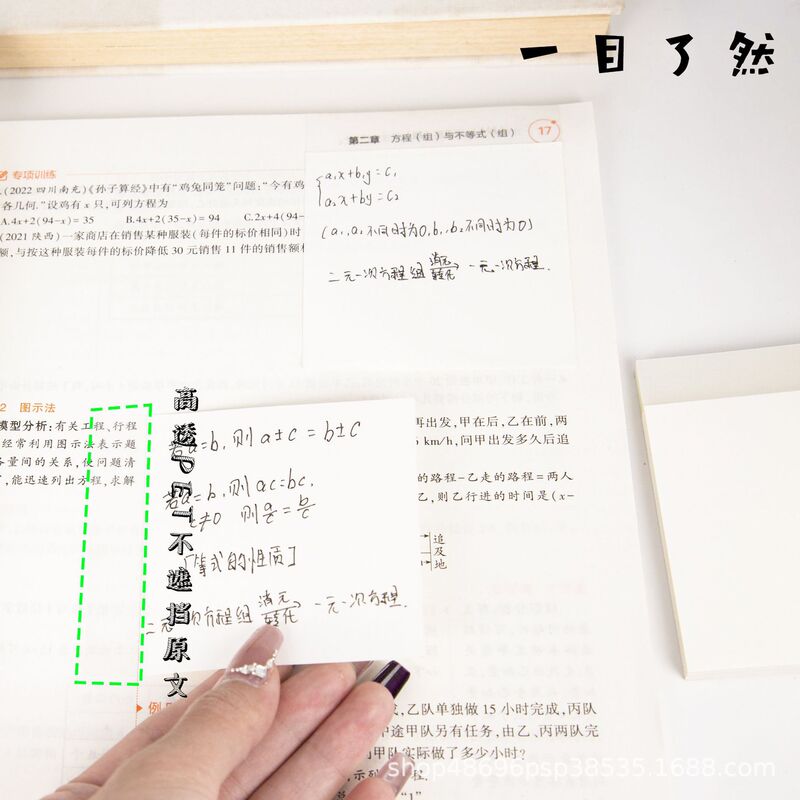 一目了然
第二章 方程（组）与不等式（组） 17
专项训练
(2022 四川南充)《孙子算经》中有“鸡兔同笼”问题:“今有鸡
各几何.”设鸡有 x 只,可列方程为
A.4x+2(94-x)=35 B.4x+2(35-x)=94 C.2x+4(94-
(2021 陕西)一家商店在销售某种服装(每件的标价相同)时
额,与按这种服装每件的标价降低 30 元销售 11 件的销售额
a₁x+b₁y=c₁
a₂x+by=c₂
(a₁,a₂不同时为0,b₁,b₂不同时为0)
二元一次方程组 消元 转化 一元一次方程.
2 图示法
模型分析:有关工程、行程
经常利用图示法表示题
各量间的关系,使问题清
,能迅速列出方程,求解
高透PET不遮挡原文
a=b,则 a±c=b±c
若a=b,则 ac=bc,
c≠0 则a/c=b/c
[等式的性质]
二元一次方程组 消元 转化 一元一次方程.
再出发,甲在后,乙在前,两
km/h,问甲出发多久后追
的路程-乙走的路程=两人
乙,则乙行进的时间是(x-
追及地
例
成,乙队单独做 15 小时完成,丙队
中途甲队另有任务,由乙、丙两队完
甲队实际做了多少小时?
“1”
shop48696psp38535.1688.com